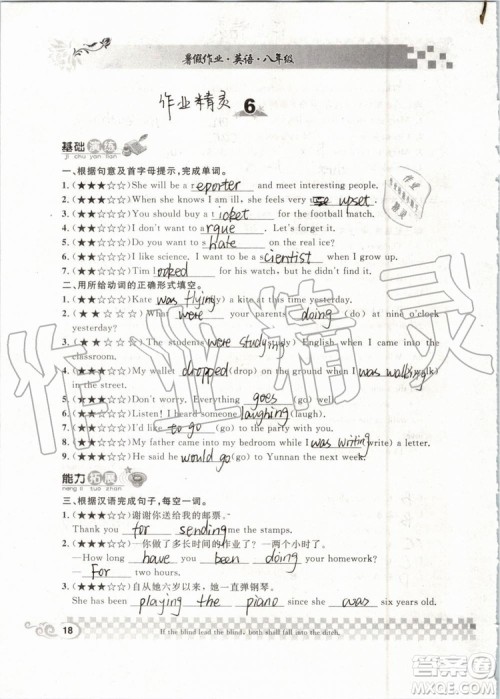 暑假作业·英语·八年级
作业精灵
6
基础演练
ji chu yan lian
一、根据句意及首字母提示,完成单词。
1.(★★★☆☆)She will be a reporter and meet interesting people.
2.(★★★☆☆)When she knows I am ill, she will be upset.
3.(★★★☆☆)You should buy a ticket for the football match.
4.(★★★☆☆)I don't want to argue. Let's forget it.
5.(★★★☆☆)Do you want to skate on the real ice?
6.(★★★☆☆)I like science. I want to be a scientist when I grow up.
7.(★★★☆☆)Tim looked for his watch, but he didn't find it.
二、用所给动词的正确形式填空。
1.(★★★☆☆)Kate was flying a kite at this time yesterday.
2.(★★★☆☆)What were your parents doing (do) at nine o'clock
yesterday?
3.(★★★☆☆)The students were studying English when I came into the
classroom.
4.(★★★☆☆)My wallet dropped (drop) on the road when I was walking
in the street.
5.(★★★☆☆)Don't worry. Everything goes (go) well.
6.(★★★☆☆)Listen! I heard someone laughing (laugh).
7.(★★★☆☆) to go (go) to
8.(★★★☆☆)My father came into my bedroom while I was writing a letter.
9.(★★★☆☆)He said he would go (go) to Yunnan the next week.
能力拓展
neng li tuo zhan
三、根据汉语完成句子,每空一词。
1.(★★★☆☆)谢谢你给我的邮票。
Thank you for sending me the stamps.
2.(★★★☆☆)—你做了多长时间的作业了?—两个小时。
—How long have you been doing your homework?
—For two hours.
3.(★★★☆☆)自从她六岁以来,她一直弹钢琴。
She has been playing the piano since she was six years old.
18
If the blind lead the blind, both shall fall into the ditch.